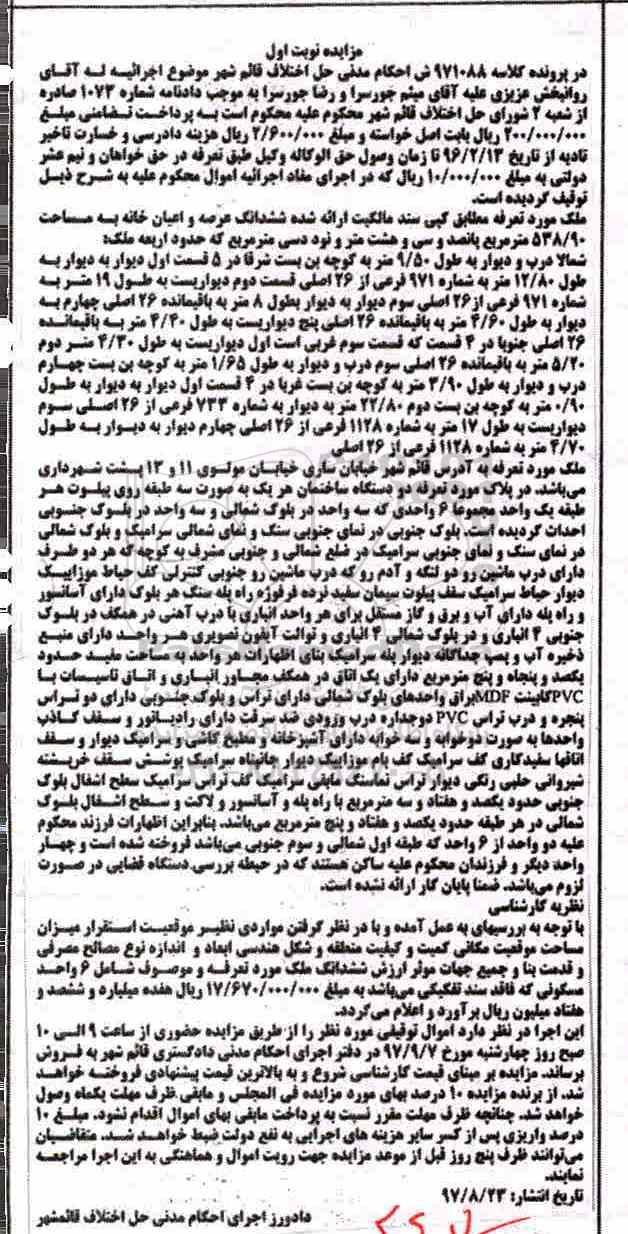 مزایده نوبت اول
در پرونده کلاسه ۹۷۱۰۸۸ ش احکام مدنی حل اختلاف قائم شهر موضوع اجرائیه له آقای
روانبخش عزیزی علیه آقای میثم جورسرا و رضا جورسرا به موجب دادنامه شماره ۱۰۷۳ صادره
از شعبه ۲ شورای حل اختلاف قائم شهر محکوم علیه محکوم است به پرداخت تضامنی مبلغ
۲۰۰/۰۰۰/۰۰۰ ریال بابت اصل خواسته و مبلغ ۲/۶۰۰/۰۰۰ ریال هزینه دادرسی و خسارت تاخیر
تادیه از تاریخ ۹۶/۲/۱۳ تا زمان وصول حق الوکاله وکیل طبق تعرفه در حق خواهان و نیم عشر
دولتی به مبلغ ۱۰/۰۰۰/۰۰۰ ریال که در اجرای مفاد اجرائیه اموال محکوم علیه به شرح ذیل
توقیف گردیده است.
ملک مورد تعرفه مطابق کپی سند مالکیت ارائه شده ششدانگ عرصه و اعیان خانه به مساحت
۵۳۸/۹۰ مترمربع پانصد و سی و هشت متر و نود دسی مترمربع که حدود اربعه ملک:
شمالا درب و دیوار به طول ۹/۵۰ متر به کوچه بن بست شرقا در ۵ قسمت اول دیوار به دیوار به
طول ۱۲/۸۰ متر به شماره ۹۷۱ فرعی از ۲۶ اصلی قسمت دوم دیواریست به طول ۱۹ متر به
شماره ۹۷۱ فرعی از۲۶ اصلی سوم دیوار به دیوار بطول ۸ متر به باقیمانده ۲۶ اصلی چهارم به
دیوار به طول ۴/۶۰ متر به باقیمانده ۲۶ اصلی پنج دیواریست به طول ۴/۴۰ متر به باقیمانده
۲۶ اصلی جنوبا در ۴ قسمت که قسمت سوم غربی است اول دیواریست به طول ۴/۳۰ متر دوم
۵/۲۰ متر به باقیمانده ۲۶ اصلی سوم درب و دیوار به طول ۱/۶۵ متر به کوچه بن بست چهارم
درب و دیوار به طول ۳/۹۰ متر به کوچه بن بست غربا در ۴ قسمت اول دیوار به دیوار به طول
۰/۹۰ متر به کوچه بن بست دوم ۲۲/۸۰ متر به دیوار به شماره ۷۳۳ فرعی از ۲۶ اصلی سوم
دیواریست به طول ۱۷ متر به شماره ۱۱۲۸ فرعی از ۲۶ اصلی چهارم دیوار به دیوار به طول
۴/۷۰ متر به شماره ۱۱۲۸ فرعی از ۲۶ اصلی
ملک مورد تعرفه به آدرس قائم شهر خیابان ساری خیابان مولوی ۱۱ و ۱۳ پشت شهرداری
می‌باشد. در پلاک مورد تعرفه دو دستگاه ساختمان هر یک به صورت سه طبقه روی پیلوت هر
طبقه یک واحد مجموعا ۶ واحدی که سه واحد در بلوک شمالی و سه واحد در بلوک جنوبی
احداث گردیده است. بلوک جنوبی در نمای جنوبی سنگ و نمای شمالی سرامیک و بلوک شمالی
در نمای سنگ و نمای جنوبی سرامیک در ضلع شمالی و جنوبی مشرف به کوچه که هر دو طرف
دارای درب ماشین رو دو لنگه و آدم رو که درب ماشین رو جنوبی کنترلی کف حیاط موزاییک
دیوار حیاط سرامیک سقف پیلوت سیمان سفید نرده فرفوژه راه پله سنگ هر بلوک دارای آسانسور
و راه پله دارای آب و برق و گاز مستقل برای هر واحد انباری با درب آهنی در همکف در بلوک
جنوبی ۴ انباری و در بلوک شمالی ۴ انباری و توالت آیفون تصویری هر واحد دارای منبع
ذخیره آب و پمپ جداگانه دیوار پله سرامیک بنای اظهارات هر واحد به مساحت مفید حدود
یکصد و پنجاه و پنج مترمربع دارای یک اتاق در همکف مجاور انباری و اتاق تاسیسات با
PVCکابینت MDFبراق واحدهای بلوک شمالی دارای تراس و بلوک جنوبی دارای دو تراس
پنجره و درب تراس PVC دوجداره درب ورودی ضد سرقت دارای رادیاتور و سقف کاذب
واحدها به صورت دوخوابه و سه خوابه دارای آشپزخانه و مطبخ کاشی و سرامیک دیوار و سقف
اتاقها سفیدکاری کف سرامیک کف بام موزاییک دیوار جانپناه سرامیک پوشش سقف خرپشته
شیروانی حلبی رنگی دیوار تراس نماسنگ مابقی سرامیک کف تراس سرامیک سطح اشغال بلوک
جنوبی حدود یکصد و هفتاد و سه مترمربع با راه پله و آسانسور و لاکت و سطح اشغال بلوک
شمالی در هر طبقه حدود یکصد و هفتاد و پنج مترمربع می‌باشد. بنابراین اظهارات فرزند محکوم
علیه دو واحد از ۶ واحد که طبقه اول شمالی و سوم جنوبی می‌باشد فروخته شده است و چهار
واحد دیگر و فرزندان محکوم علیه ساکن هستند که در حیطه بررسی دستگاه قضایی در صورت
لزوم می‌باشد. ضمنا پایان کار ارائه نشده است.
نظریه کارشناسی
با توجه به بررسیهای به عمل آمده و با در نظر گرفتن مواردی نظیر موقعیت استقرار میزان
مساحت موقعیت مکانی کمیت و کیفیت منطقه و شکل هندسی ابعاد و اندازه نوع مصالح مصرفی
و قدمت بنا و جمیع جهات موثر ارزش ششدانگ ملک مورد تعرفه و موصوف شامل ۶ واحد
مسکونی که فاقد سند تفکیکی می‌باشد به مبلغ ۱۷/۶۷۰/۰۰۰/۰۰۰ ریال هفده میلیارد و ششصد و
هفتاد میلیون ریال برآورد و اعلام می‌گردد.
این اجرا در نظر دارد اموال توقیفی مورد نظر را از طریق مزایده حضوری از ساعت ۹ الی ۱۰
صبح روز چهارشنبه مورخ ۹۷/۹/۷ در دفتر اجرای احکام مدنی دادگستری قائم شهر به فروش
برساند. مزایده بر مبنای قیمت کارشناسی شروع و به بالاترین قیمت پیشنهادی فروخته خواهد
شد. از برنده مزایده ۱۰ درصد بهای مورد مزایده فی المجلس و مابقی ظرف مهلت یکماه وصول
خواهد شد. چنانچه ظرف مهلت مقرر نسبت به پرداخت مابقی بهای اموال اقدام نشود. مبلغ ۱۰
درصد واریزی پس از کسر سایر هزینه های اجرایی به نفع دولت ضبط خواهد شد. متقاضیان
می‌توانند ظرف پنج روز قبل از موعد مزایده جهت رویت اموال و هماهنگی به این اجرا مراجعه
نمایند.
تاریخ انتشار: ۹۷/۸/۲۳
دادورز اجرای احکام مدنی حل اختلاف قائمشهر